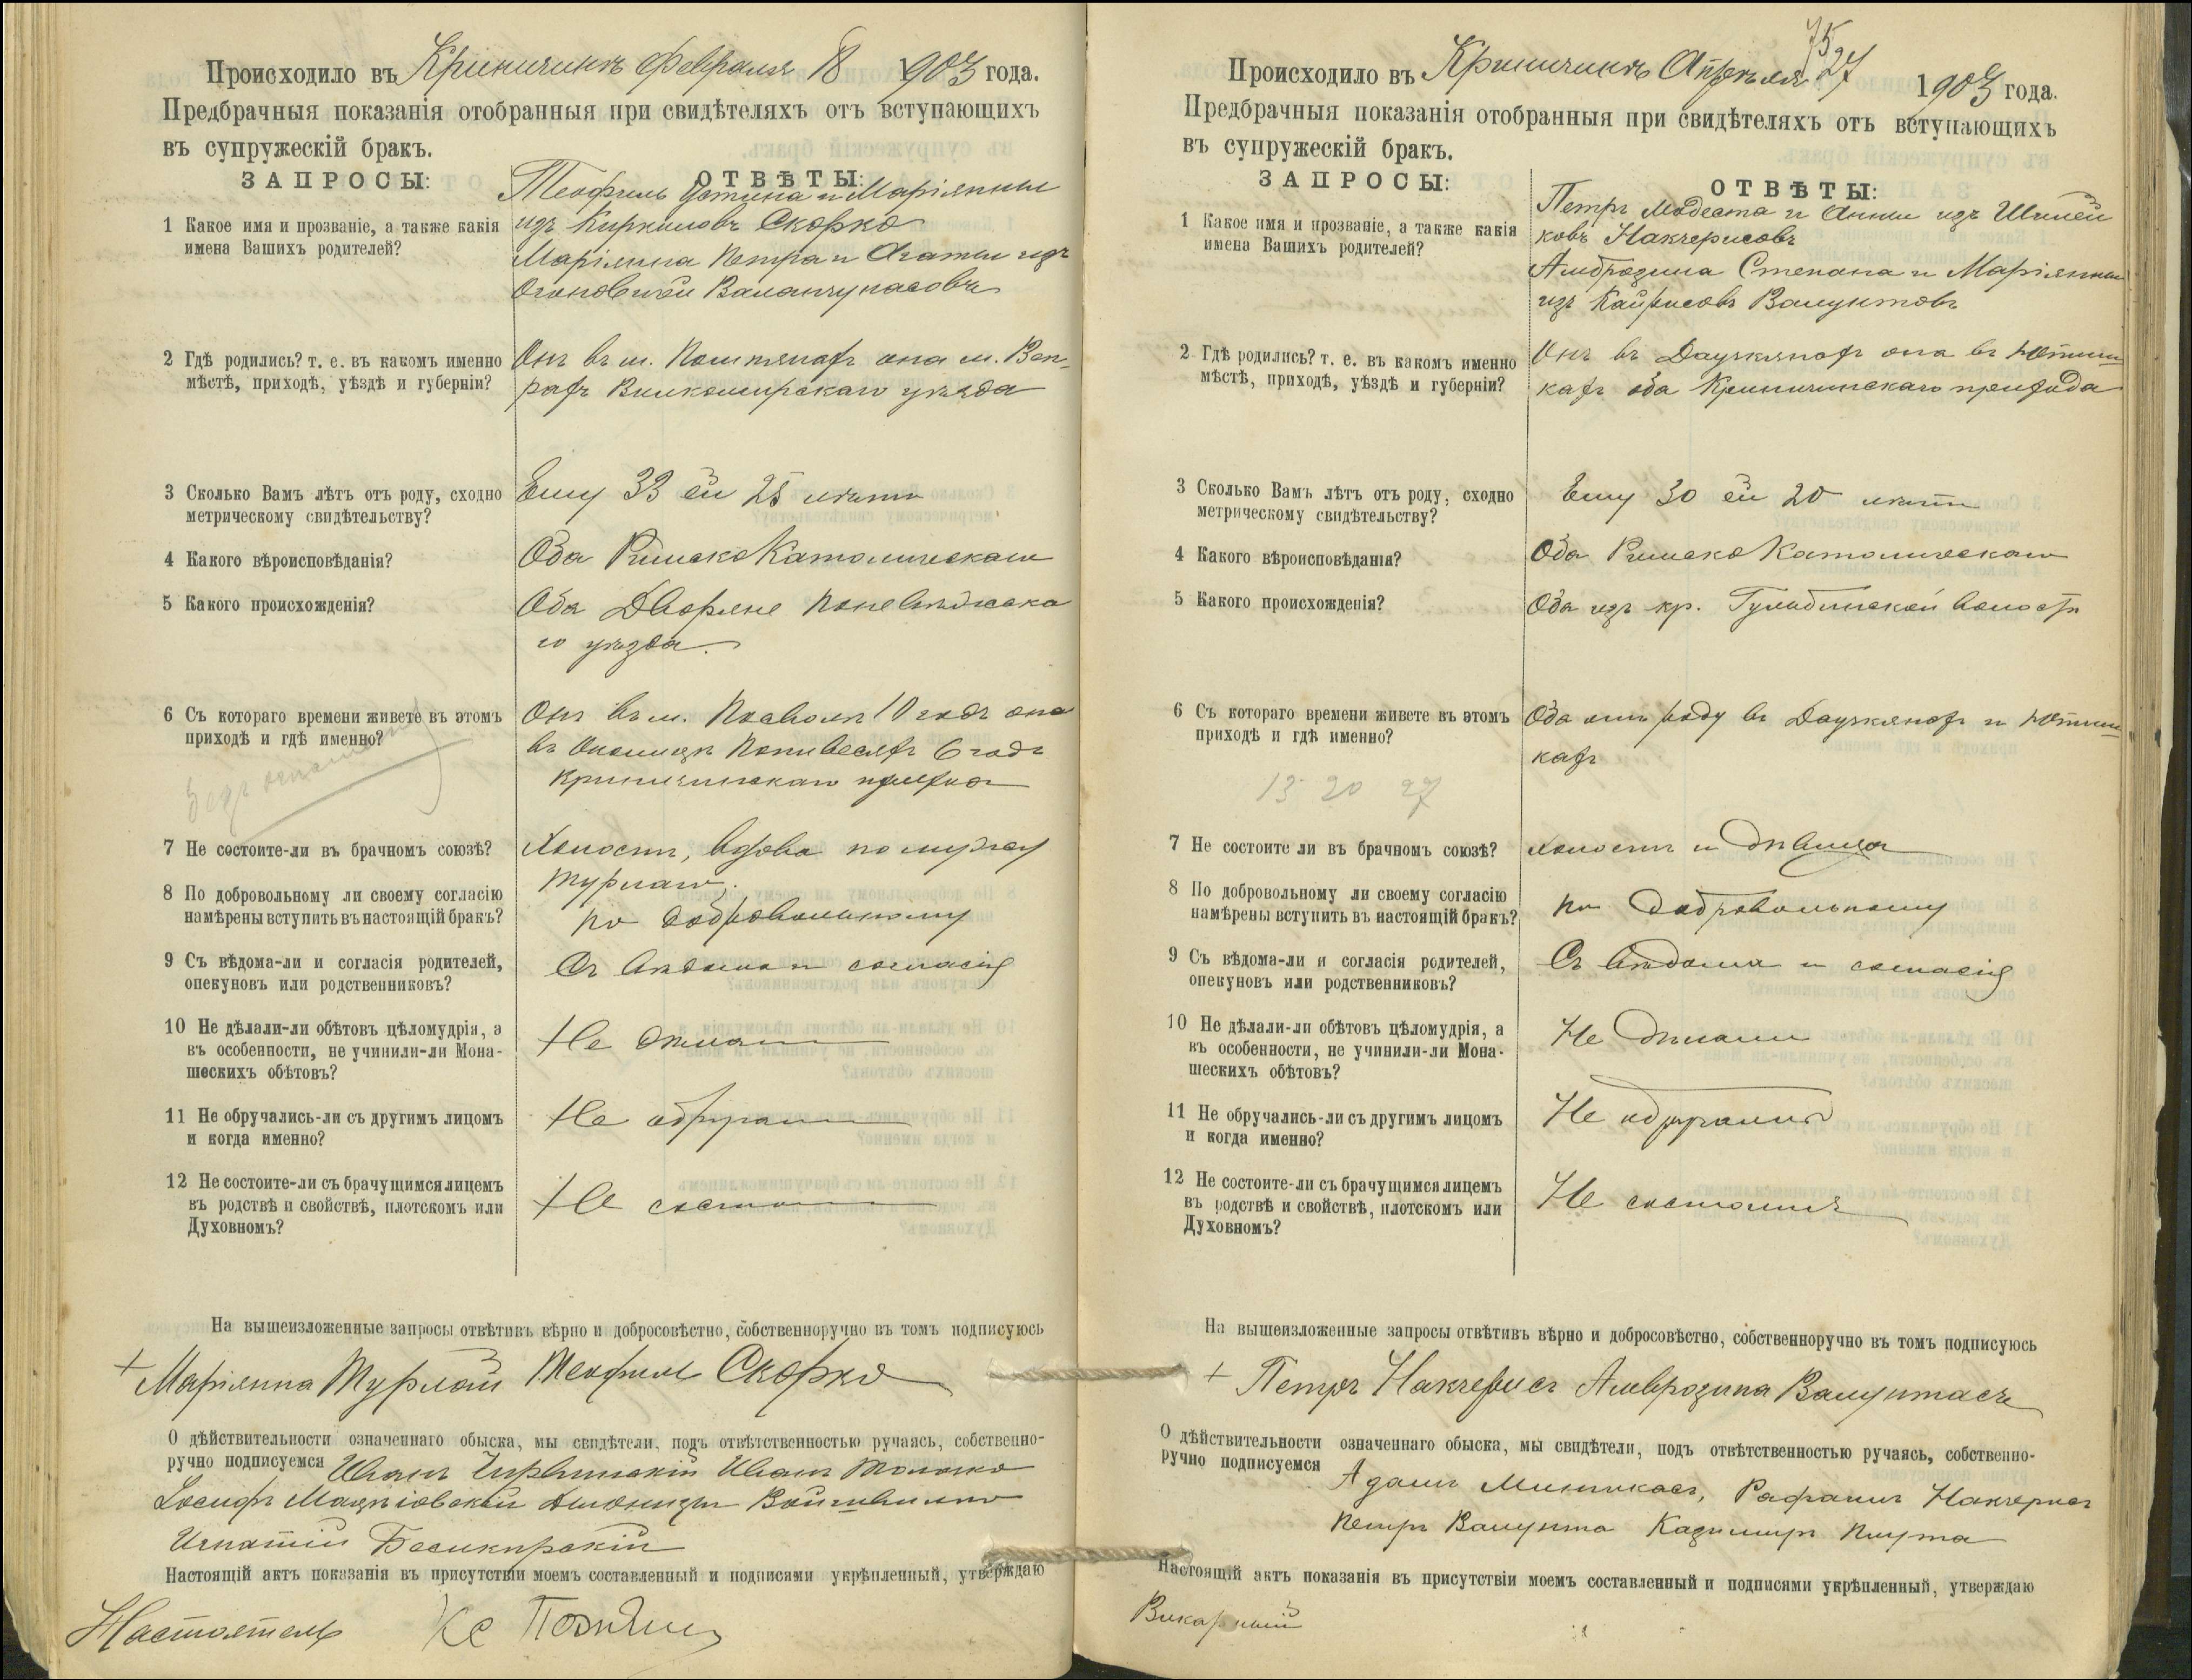 Происходило въ Криничинѣ Февраля 18 1903 года.
Предбрачныя показанія отобранныя при свидѣтеляхъ отъ вступающихъ
въ супружескій бракъ.
ЗАПРОСЫ: ОТВѢТЫ:
1 Какое имя и прозваніе, а также какія
имена Вашихъ родителей?
Теофиль Устина и Маріянны
изъ Киркиловъ Скорко
Маріянна Петра и Агаты изъ
Валанчунасовъ
2 Гдѣ родились? т. е. въ какомъ именно
мѣстѣ, приходѣ, уѣздѣ и губерніи?
Онъ въ м. она м. Веп-
рахъ Вилкомирскаго уѣзда
3 Сколько Вамъ лѣтъ отъ роду, сходно
метрическому свидѣтельству?
Ему 33 ей 25 лѣтъ
4 Какого вѣроисповѣданія?
Оба Римско Католическаго
5 Какого происхожденія?
Оба Дворяне Поневѣжска
го уѣзда.
6 Съ котораго времени живете въ этомъ
приходѣ и гдѣ именно?
Онъ въ м. Посволѣ 10 годъ она
въ Околицѣ 6 годъ
Криничинскаго прихода
7 Не состоите-ли въ брачномъ союзѣ?
Холостъ, вдова по мужу
Турлаю.
8 По добровольному ли своему согласію
намѣрены вступить въ настоящій бракъ?
по добровольному
9 Съ вѣдома-ли и согласія родителей,
опекуновъ или родственниковъ?
Съ вѣдома и согласія
10 Не дѣлали-ли обѣтовъ цѣломудрія, а
въ особенности, не учинили-ли Мона-
шескихъ обѣтовъ?
Не дѣлали
11 Не обручались-ли съ другимъ лицомъ
и когда именно?
Не обручали
12 Не состоите-ли съ брачущимся лицемъ
въ родствѣ и свойствѣ, плотскомъ или
Духовномъ?
Не состо
На вышеизложенные запросы отвѣтивъ вѣрно и добросовѣстно, собственноручно въ томъ подписуюсь
+ Маріянна Турлай Теофил Скорко
О дѣйствительности означеннаго обыска, мы свидѣтели, подъ отвѣтственностью ручаясь, собственно-
ручно подписуемся Иванъ Чирвинскій Иванъ
Іосифъ
Игнатій
Настоящій актъ показанія въ присутствіи моемъ составленный и подписями укрѣпленный, утверждаю
Настоятель Кс
75
Происходило въ Криничинѣ Апрѣля 27 1903 года.
Предбрачныя показанія отобранныя при свидѣтеляхъ отъ вступающихъ
въ супружескій бракъ.
ЗАПРОСЫ: ОТВѢТЫ:
1 Какое имя и прозваніе, а также какія
имена Вашихъ родителей?
Петръ Модеста и Анны изъ Шилей
ковъ Накчерисовъ
Амброзина Степана и Маріянны
изъ Кайрисовъ Валунтовъ
2 Гдѣ родились? т. е. въ какомъ именно
мѣстѣ, приходѣ, уѣздѣ и губерніи?
Онъ въ Даучкянахъ она въ
кахъ оба Криничинскаго прихода
3 Сколько Вамъ лѣтъ отъ роду, сходно
метрическому свидѣтельству?
Ему 30 ей 20 лѣтъ
4 Какого вѣроисповѣданія?
Оба Римско Католическаго
5 Какого происхожденія?
Оба изъ кр. Гулбинской волости
6 Съ котораго времени живете въ этомъ
приходѣ и гдѣ именно?
Оба отъ роду въ Даучкянахъ и
кахъ
13 20 27
7 Не состоите ли въ брачномъ союзѣ?
холостъ и дѣвица
8 По добровольному ли своему согласію
намѣрены вступить въ настоящій бракъ?
по добровольному
9 Съ вѣдома-ли и согласія родителей,
опекуновъ или родственниковъ?
Съ вѣдома и согласія
10 Не дѣлали-ли обѣтовъ цѣломудрія, а
въ особенности, не учинили-ли Мона-
шескихъ обѣтовъ?
Не дѣлали
11 Не обручались-ли съ другимъ лицомъ
и когда именно?
Не обручались
12 Не состоите-ли съ брачущимся лицемъ
въ родствѣ и свойствѣ, плотскомъ или
Духовномъ?
Не состоимъ
На вышеизложенные запросы отвѣтивъ вѣрно и добросовѣстно, собственноручно въ томъ подписуюсь
+ Петръ Накчерисъ Амврозина Валунтасъ
О дѣйствительности означеннаго обыска, мы свидѣтели, подъ отвѣтственностью ручаясь, собственно-
ручно подписуемся Адамъ Рафаилъ Накчерисъ
Петръ Валунта Казимиръ Плута
Настоящій актъ показанія въ присутствіи моемъ составленный и подписями укрѣпленный, утверждаю
Викарный